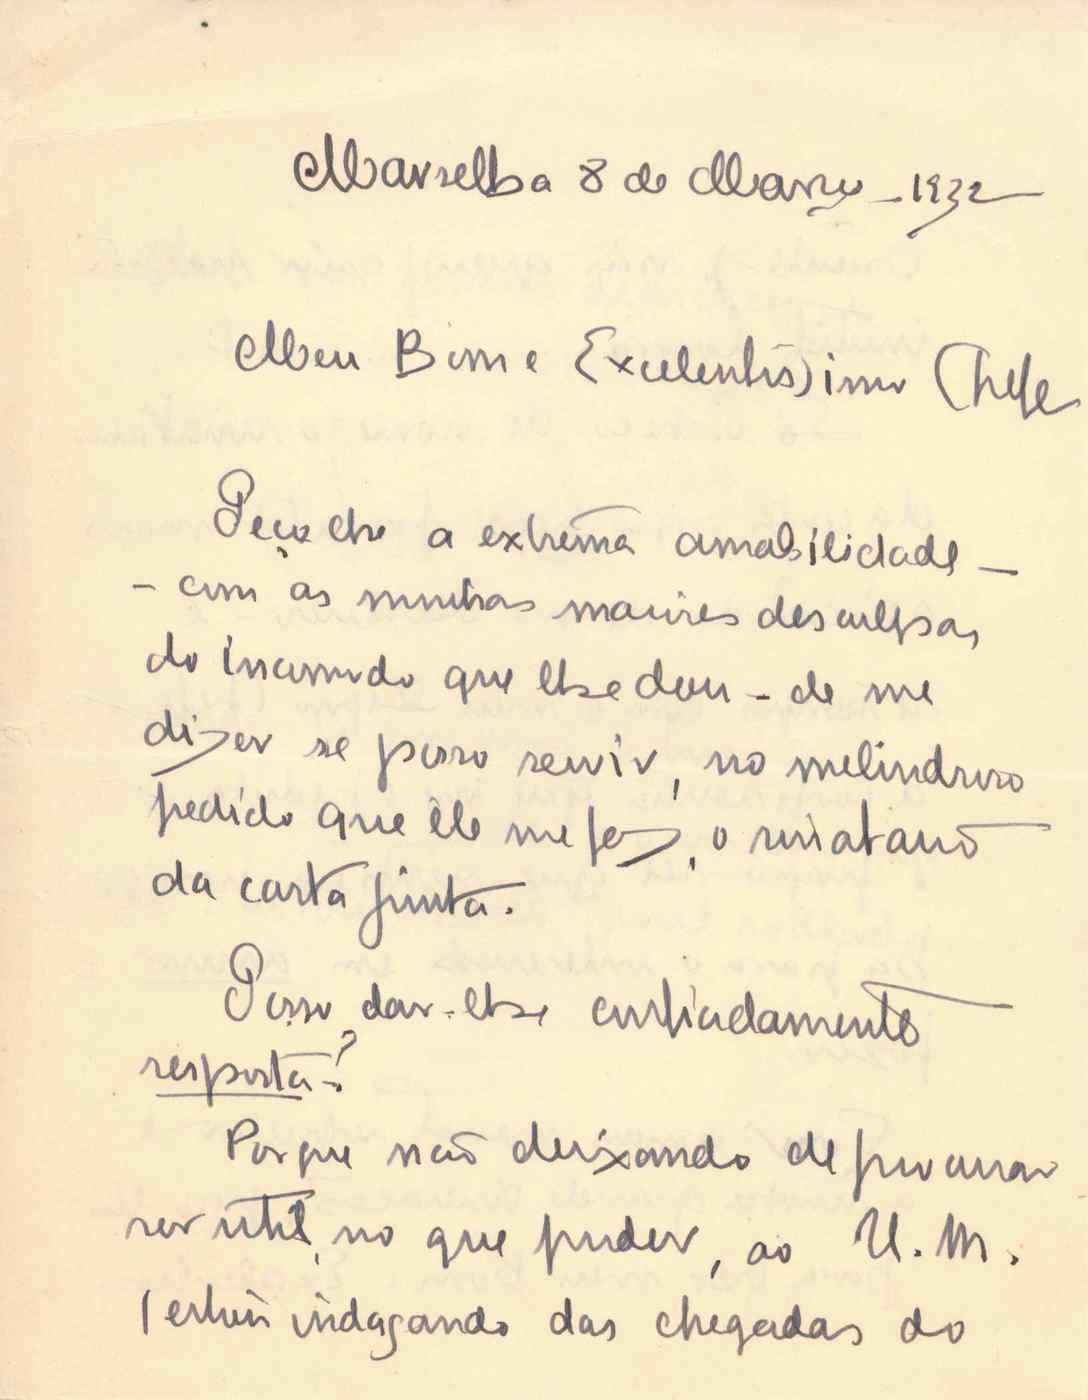 Marselha 8 de Março - 1932
Meu Bom e Excelentissimo Chefe
Peço lhe a extrema amabilidade -
- com as minhas maiores desculpas,
do incomodo que lhe dou - de me
dizer se posso servir, no melindroso
pedido que êle me fez, o
da carta junta.
Posso dar-lhe confiadamente
resposta?
Porque não deixando de procurar
ser util, no que puder, ao U. M.
(estou indagando das chegadas do